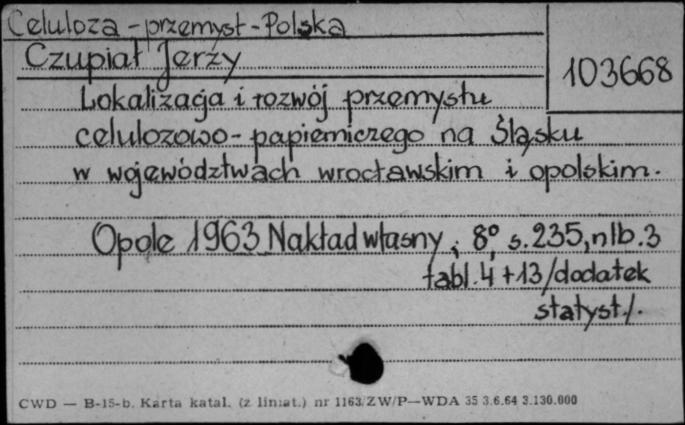 Celuloza - przemysł - Polska
Czupiał Jerzy
103668
Lokalizacja i rozwój przemysłu
celulozowo - papierniczego na Śląsku
w województwach wrocławskim i opolskim.
Opole 1963 Nakład własny; 8°, s.235, nlb.3
tabl.4 + 13 /dodatek
statyst./.
CWD — B-15-b. Karta katal. (z liniat.) nr 1163/ZW/P—WDA 35 3.6.64 3.130.000